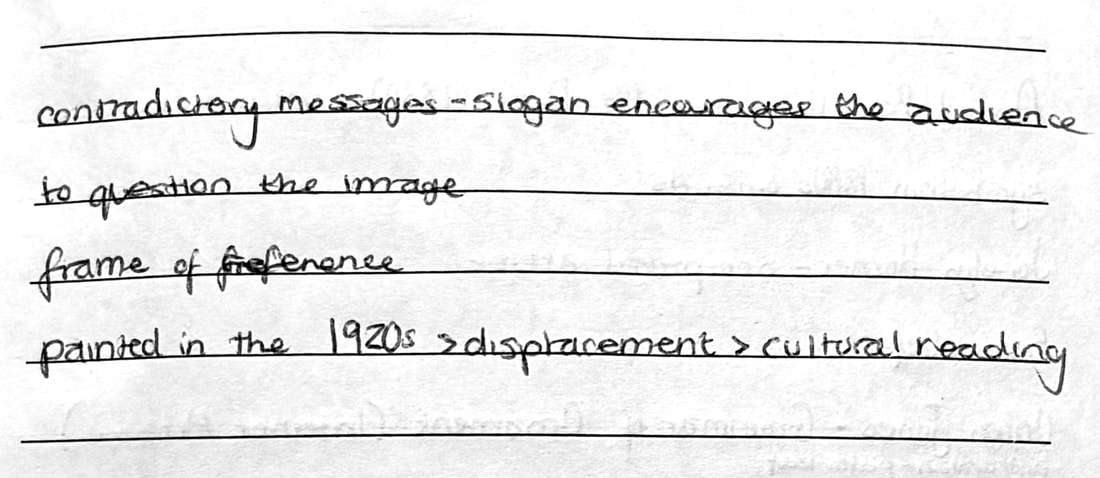 contradictory messages - slogan encourages the audience
to question the image
frame of reference
painted in the 1920s > displacement > cultural reading